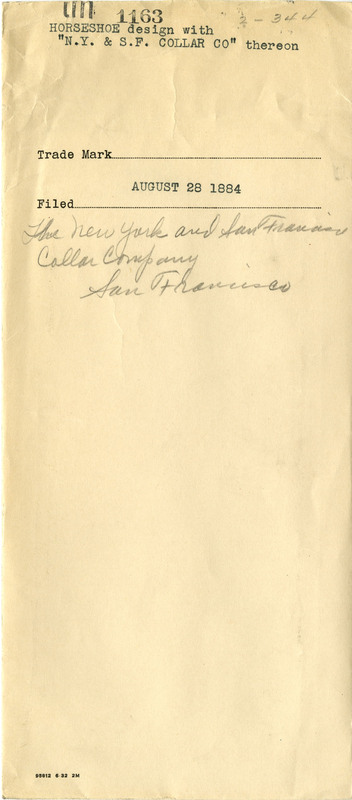 1163 3-344
HORSESHOE design with
"N.Y. & S.F. COLLAR CO" thereon
Trade Mark
AUGUST 28 1884
Filed
The New York and San Francisco
Collar Company
San Francisco
99912 6-32 2M